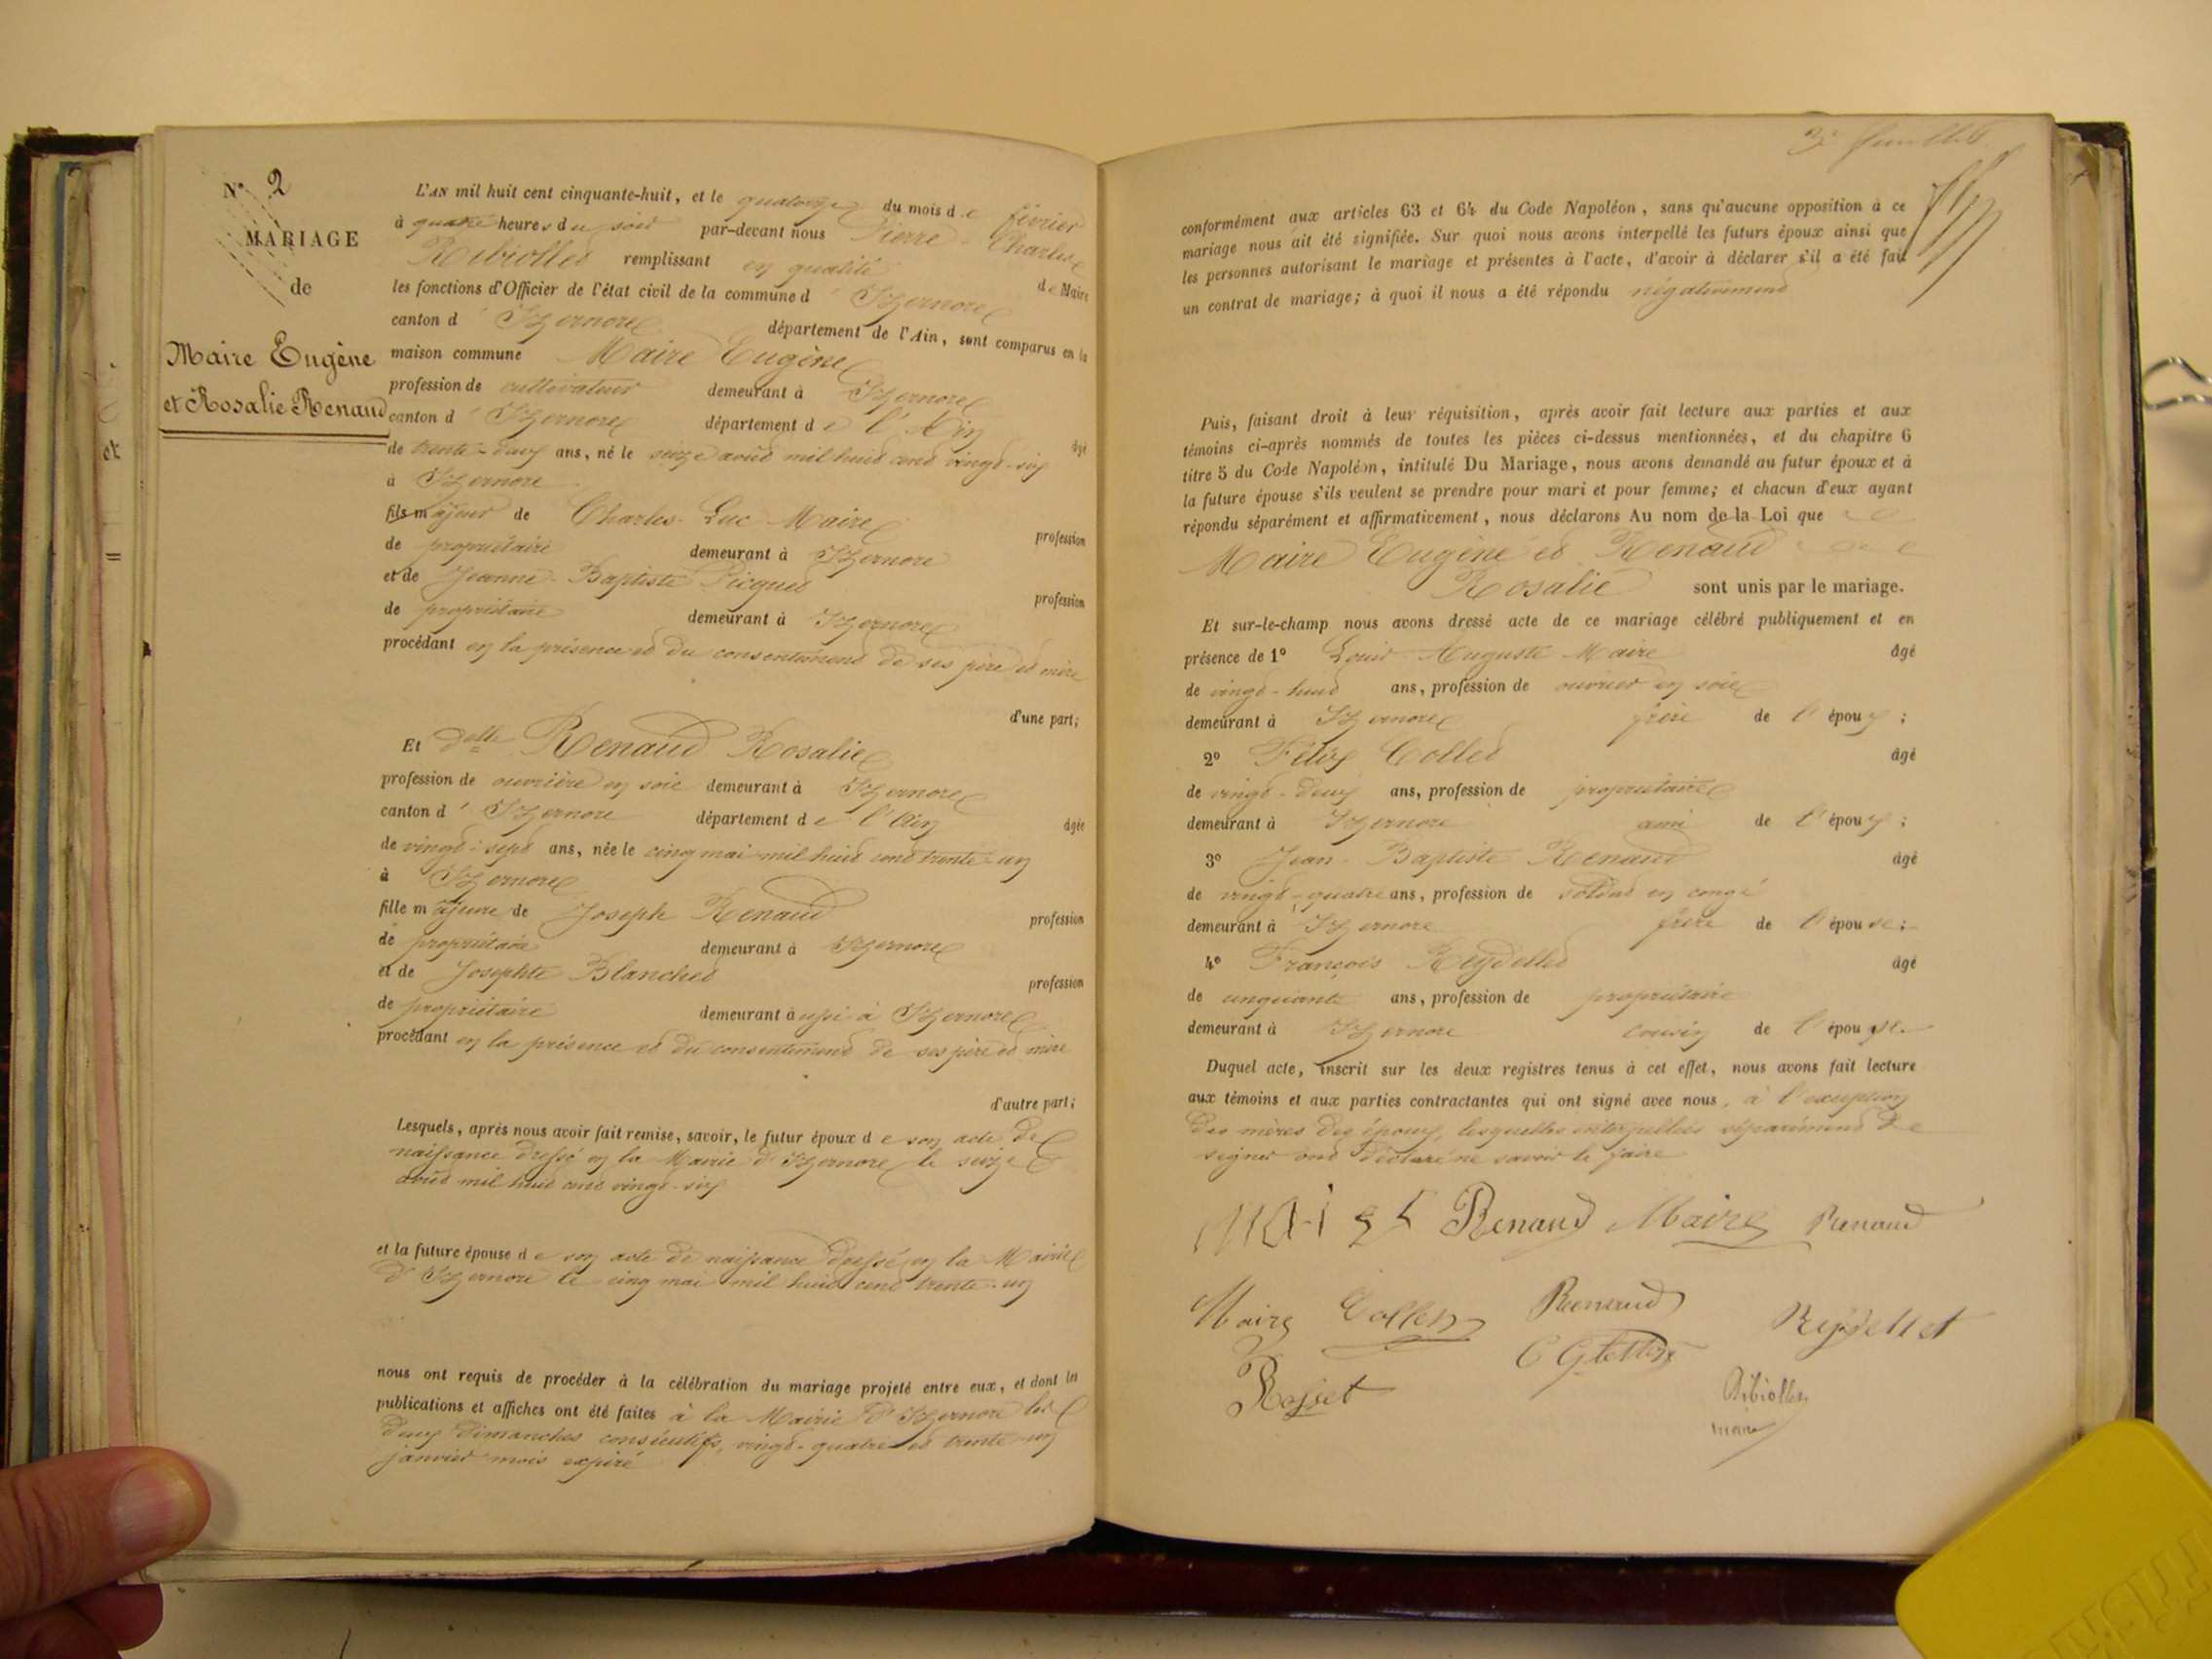 N° 2
MARIAGE
de
Maire Eugène
et Rosalie Renaud
L'AN mil huit cent cinquante-huit, et le quatorze du mois de février
à quatre heures du soir par-devant nous Pierre-Charles
Ribiollet remplissant en qualité de Maire
les fonctions d'Officier de l'état civil de la commune d'Izernore
canton d'Izernore département de l'Ain, sont comparus en la
maison commune Maire Eugène
profession de cultivateur demeurant à Izernore
canton d'Izernore département de l'Ain âgé
de trente-deux ans, né le seize août mil huit cent vingt-six
à Izernore
fils majeur de Charles-Luc Maire profession
de propriétaire demeurant à Izernore
et de Jeanne-Baptiste Picquet profession
de propriétaire demeurant à Izernore
procédant en la présence et du consentement de ses père et mère
d'une part;
Et Delle Renaud Rosalie
profession de ouvrière en soie demeurant à Izernore
canton d'Izernore département de l'Ain âgée
de vingt-sept ans, née le cinq mai mil huit cent trente-un
à Izernore
fille majeure de Joseph Renaud profession
de propriétaire demeurant à Izernore
et de Josephte Blanchet profession
de propriétaire demeurant aussi à Izernore
procédant en la présence et du consentement de ses père et mère
d'autre part;
Lesquels, après nous avoir fait remise, savoir, le futur époux de son acte de
naissance dressé en la Mairie d'Izernore le seize
août mil huit cent vingt-six
et la future épouse de son acte de naissance dressé en la Mairie
d'Izernore le cinq mai mil huit cent trente-un
nous ont requis de procéder à la célébration du mariage projeté entre eux, et dont les
publications et affiches ont été faites à la Mairie d'Izernore les
deux dimanches consécutifs, vingt-quatre et trente-un
janvier mois expiré
3e feuillet
conformément aux articles 63 et 64 du Code Napoléon, sans qu'aucune opposition à ce
mariage nous ait été signifiée. Sur quoi nous avons interpellé les futurs époux ainsi que
les personnes autorisant le mariage et présentes à l'acte, d'avoir à déclarer s'il a été fait
un contrat de mariage; à quoi il nous a été répondu négativement
Puis, faisant droit à leur réquisition, après avoir fait lecture aux parties et aux
témoins ci-après nommés de toutes les pièces ci-dessus mentionnées, et du chapitre 6
titre 5 du Code Napoléon, intitulé Du Mariage, nous avons demandé au futur époux et à
la future épouse s'ils veulent se prendre pour mari et pour femme; et chacun d'eux ayant
répondu séparément et affirmativement, nous déclarons Au nom de la Loi que
Maire Eugène et Renaud
Rosalie sont unis par le mariage.
Et sur-le-champ nous avons dressé acte de ce mariage célébré publiquement et en
présence de 1° Louis Auguste Maire âgé
de vingt-huit ans, profession de ouvrier en soie
demeurant à Izernore frère de l'époux;
2° Félix Collet âgé
de vingt-deux ans, profession de propriétaire
demeurant à Izernore ami de l'époux;
3° Jean-Baptiste Renaud âgé
de vingt-quatre ans, profession de soldat en congé
demeurant à Izernore frère de l'épouse;
4° François Reydellet âgé
de cinquante ans, profession de propriétaire
demeurant à Izernore cousin de l'épouse.
Duquel acte, inscrit sur les deux registres tenus à cet effet, nous avons fait lecture
aux témoins et aux parties contractantes qui ont signé avec nous, à l'exception
des mères des époux, lesquelles interpellées séparément de
signer ont déclaré ne savoir le faire
Renaud Maire Renaud
Maire Collet Renaud Reydellet
Rosset
Ribiollet
maire